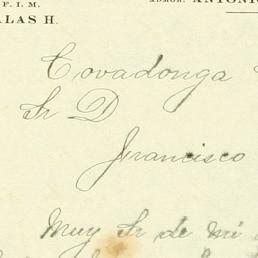 F. I. M.
ALAS H.
ADMOR. ANTONI
Covadonga
Sr D
Francisco
Muy Sr de mi